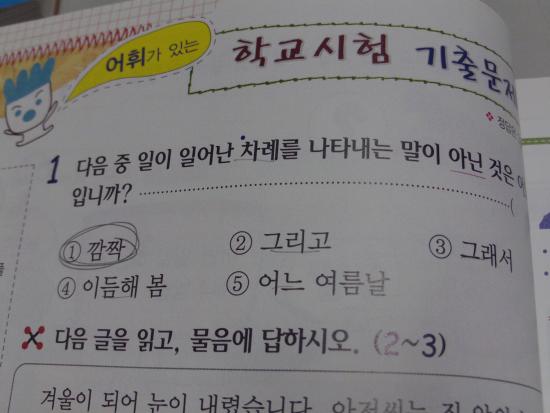 어휘가 있는
학교시험 기출문제
1 다음 중 일이 일어난 차례를 나타내는 말이 아닌 것은
입니까? (
① 깜짝 ② 그리고 ③ 그래서
④ 이듬해 봄 ⑤ 어느 여름날
다음 글을 읽고, 물음에 답하시오. (2~3)
겨울이 되어 눈이 내렸습니다.